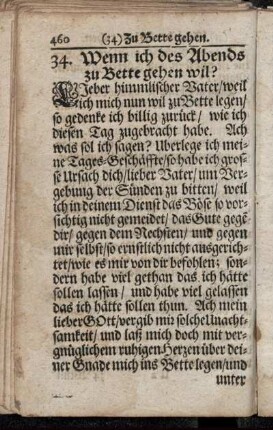 460 (34) Zu Bette gehen.
34. Wenn ich des Abends
zu Bette gehen wil?
LIeber himmlischer Vater/ weil
ich mich nun wil zu Bette legen/
so gedenke ich billig zurück/ wie ich
diesen Tag zugebracht habe. Ach
was sol ich sagen? Uberlege ich mei-
ne Tages-Geschäffte/ so habe ich gros-
se Ursach dich/ lieber Vater/ um Ver-
gebung der Sünden zu bitten/ weil
ich in deinem Dienst das Böse so vor-
sichtig nicht gemeidet/ das Gute gegē
dir/ gegen dem Nechsten/ und gegen
mir selbst/ so ernstlich nicht ausgerich-
tet/ wie es mir von dir befohlen; son-
dern habe viel gethan das ich hätte
sollen lassen/ und habe viel gelassen
das ich hätte sollen thun. Ach mein
lieber GOtt/ vergib mir solche Unacht-
samkeit/ und laß mich doch mit ver-
gnüglichem ruhigen Herzen über dei-
ner Gnade mich ins Bette legen/ und
unter